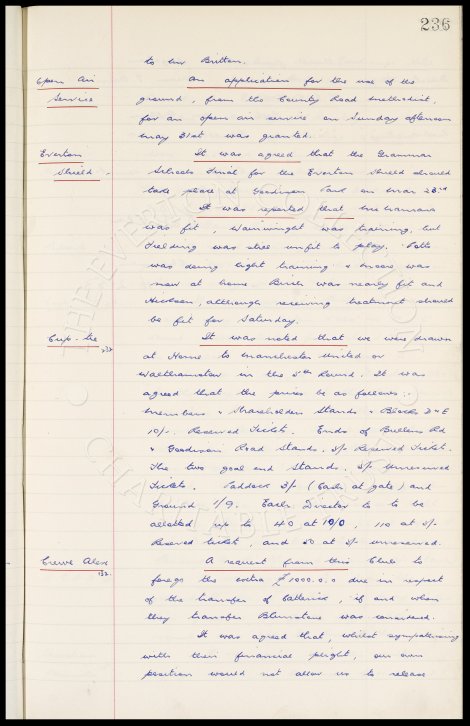 236
to Mr Britton.
Open Air
Service
An application for the use of the
ground, from the County Road Methodist,
for an open air service on Sunday afternoon
May 31st was granted.
Everton
Shield.
It was agreed that the Grammar
Schools Final for the Everton Shield should
take place at Goodison Park on Mar 28th
It was reported that
was fit, Wainwright was training, but
Fielding was still unfit to play. Potts
was doing light training & Moore was
now at home Birch was nearly fit and
Hickson, although receiving treatment should
be fit for Saturday.
Cup-tie
232
It was noted that we were drawn
at Home to Manchester United or
Walthamstow in the 5th Round. It was
agreed that the prices be as follows:-
Members & Shareholders Stands & Blocks D & E
10/- Reserved Tickets. Ends of Bullens Rd
& Goodison Road Stands, 5/- Reserved Tickets.
The two goal end Stands, 5/- Unreserved
Tickets. Paddock 3/- (Cash at gate) and
Ground 1/9. Each Director to to be
allotted up to 40 at 10/0, 110 at 5/-
Reserved ticket, and 50 at 5/- unreserved.
Crewe Alex
132.
A request from this Club to
forego the extra £1000.0.0 due in respect
of the transfer of Catterick, if and when
they transfer Blunstone was considered.
It was agreed that, whilst sympathising
with their financial plight, our own
position would not allow us to release
THE EVERTON COLLECTION
CHARITABLE TRUST